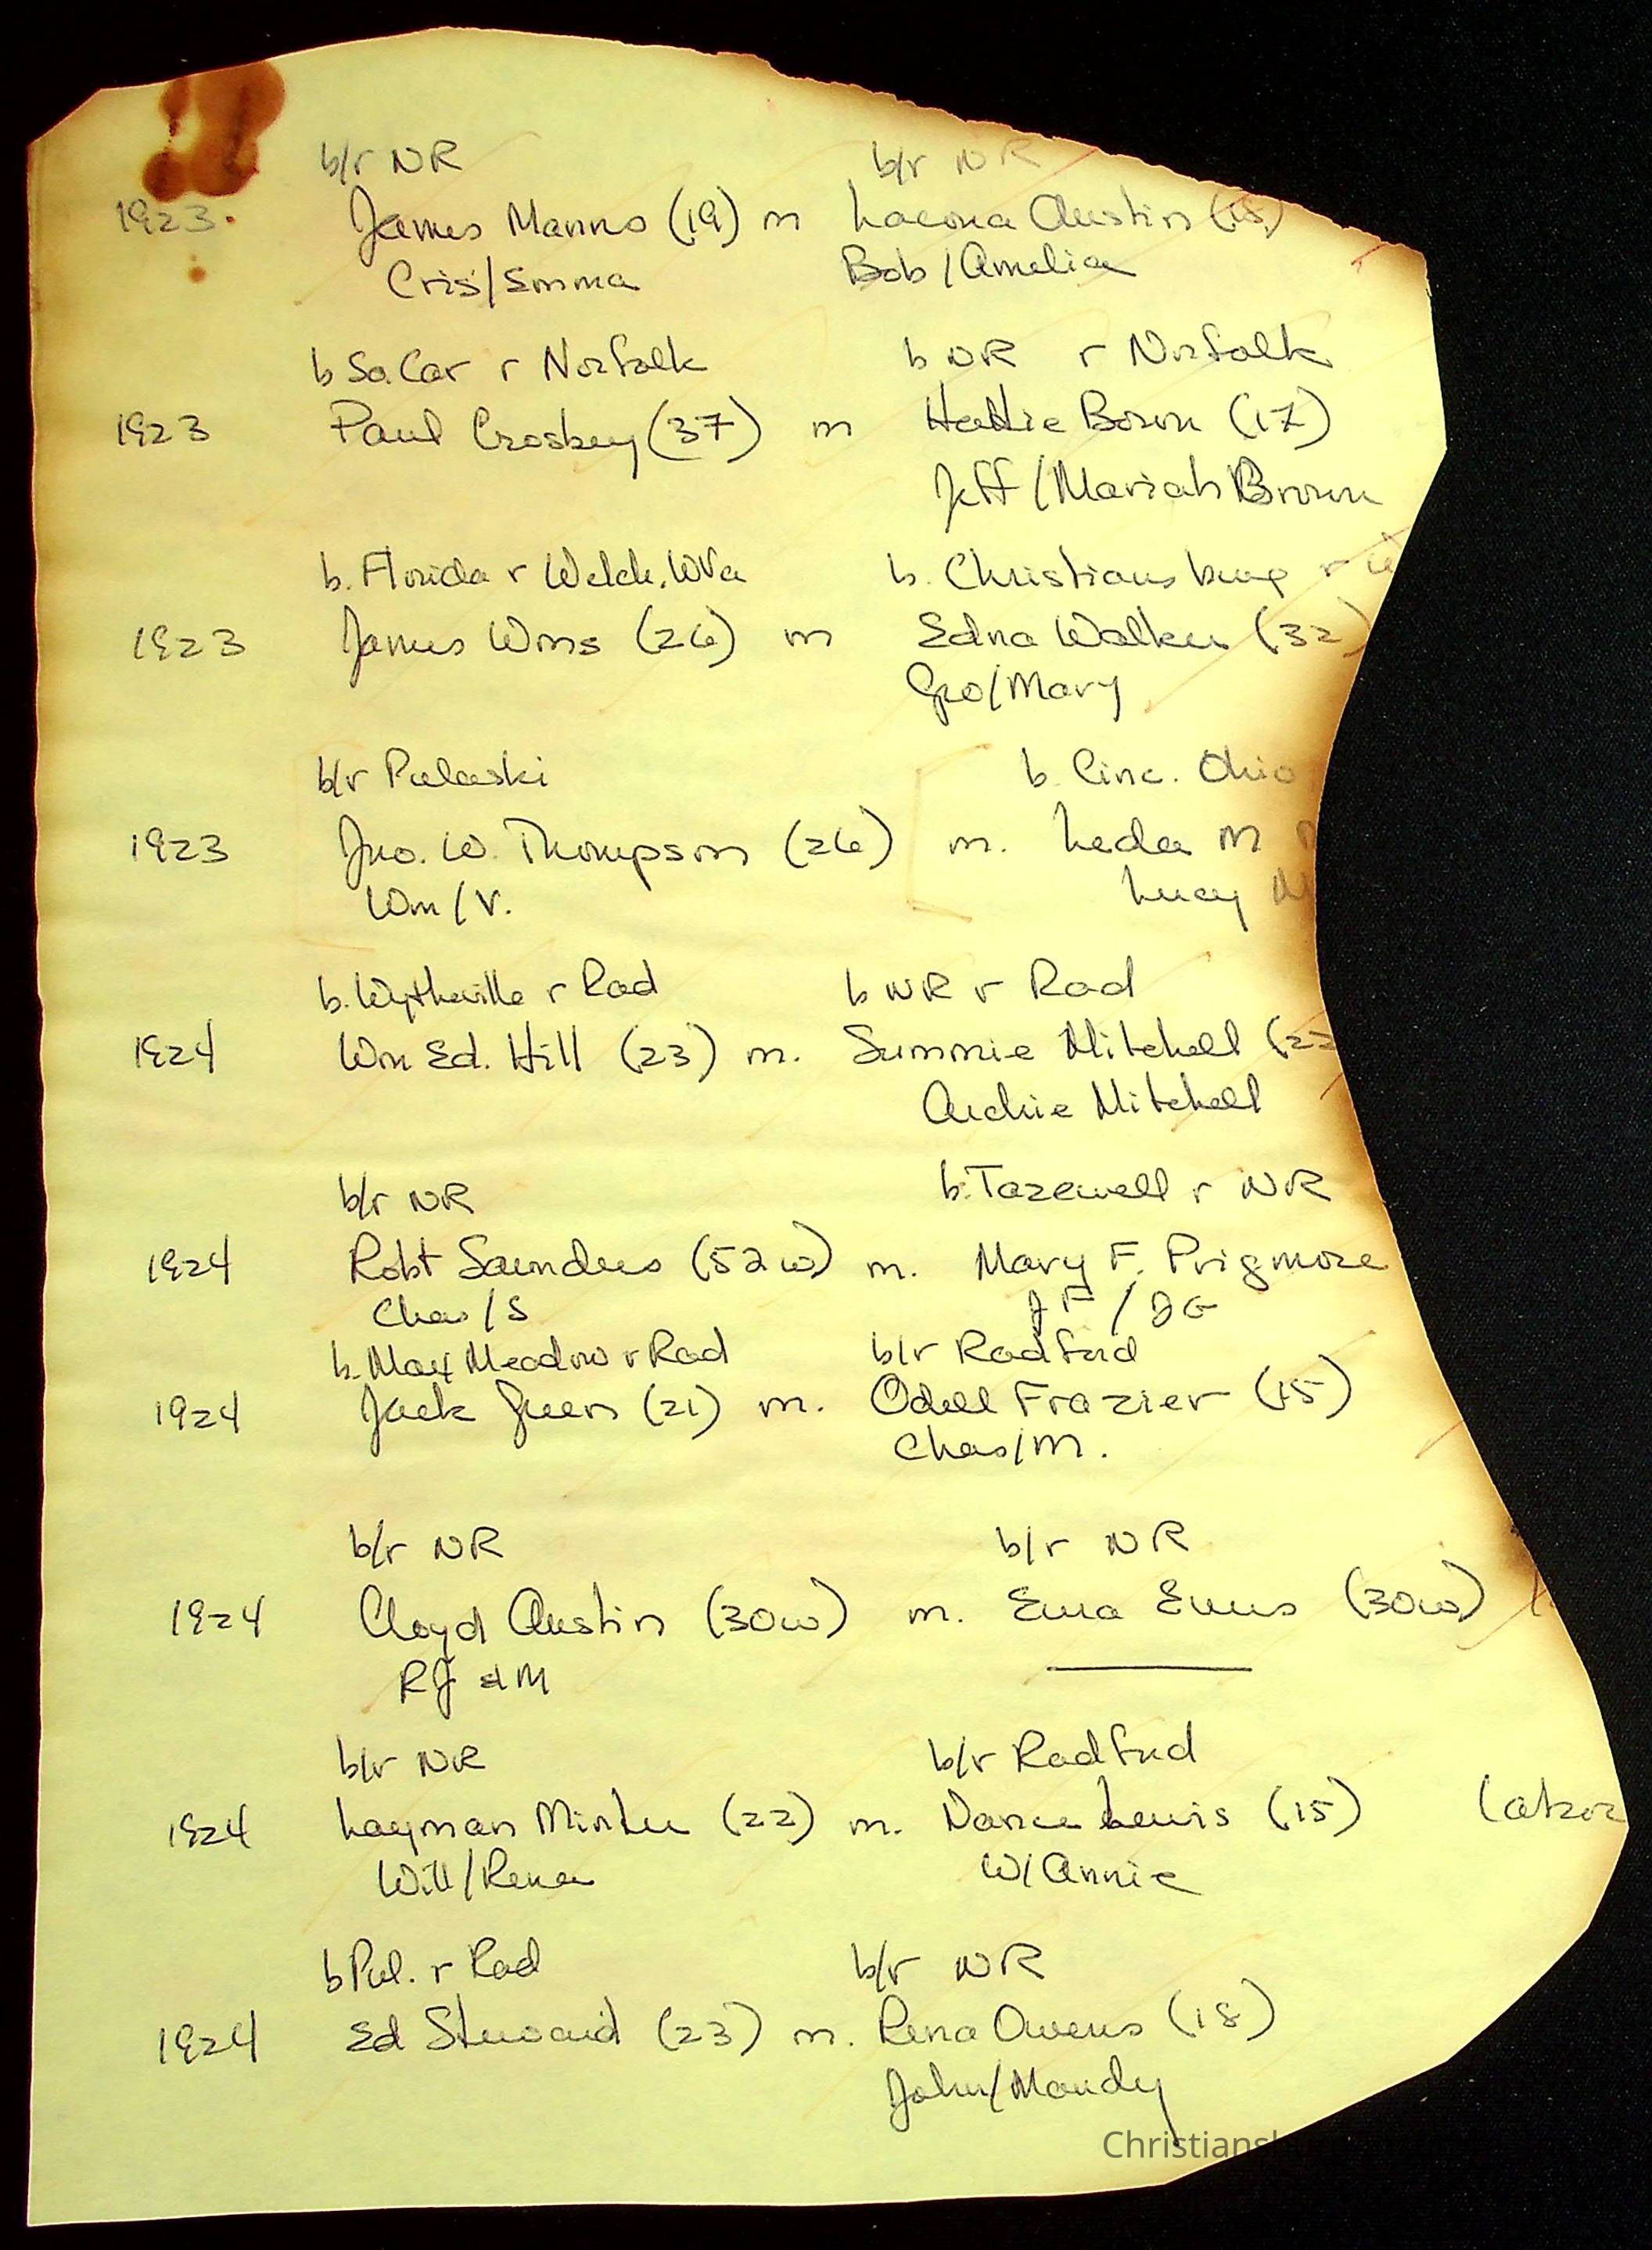 b/r NR b/r NR
1923. James Manns (19) m Laeona Austin (15)
Cris/Emma Bob/Amelia
b So.Car r Norfolk b NR r Norfolk
1923 Paul Croskey (37) m Hattie Bown (17)
Jeff/Mariah Brown
b. Florida r Welch, WVa b. Christiansburg r
1923 James Wms (26) m Edna Walker (32)
Geo/Mary
b/r Pulaski b. Cinc. Ohio
1923 Jno. W. Thompson (26) m. Leda M
Wm/V. Lucy
b. Wytheville r Rad b NR r Rad
1924 Wm Ed. Hill (23) m. Summie Mitchell
Archie Mitchell
b/r NR b. Tazewell r NR
1924 Robt Saunders (52w) m. Mary F. Prigmore
Chas/S JF / JG
b. Max Meadow r Rad b/r Radford
1924 Jack Green (21) m. Odell Frazier (15)
Chas/M.
b/r NR b/r NR
1924 Cloyd Austin (30w) m. Ema Evans (30w)
RJ & M
b/r NR b/r Radford
1924 Layman Minter (22) m. Nance Lewis (15)
Will/Rena W/Annie
b Pul. r Rad b/r NR
1924 Ed Steward (23) m. Rena Owens (18)
John/Mandy